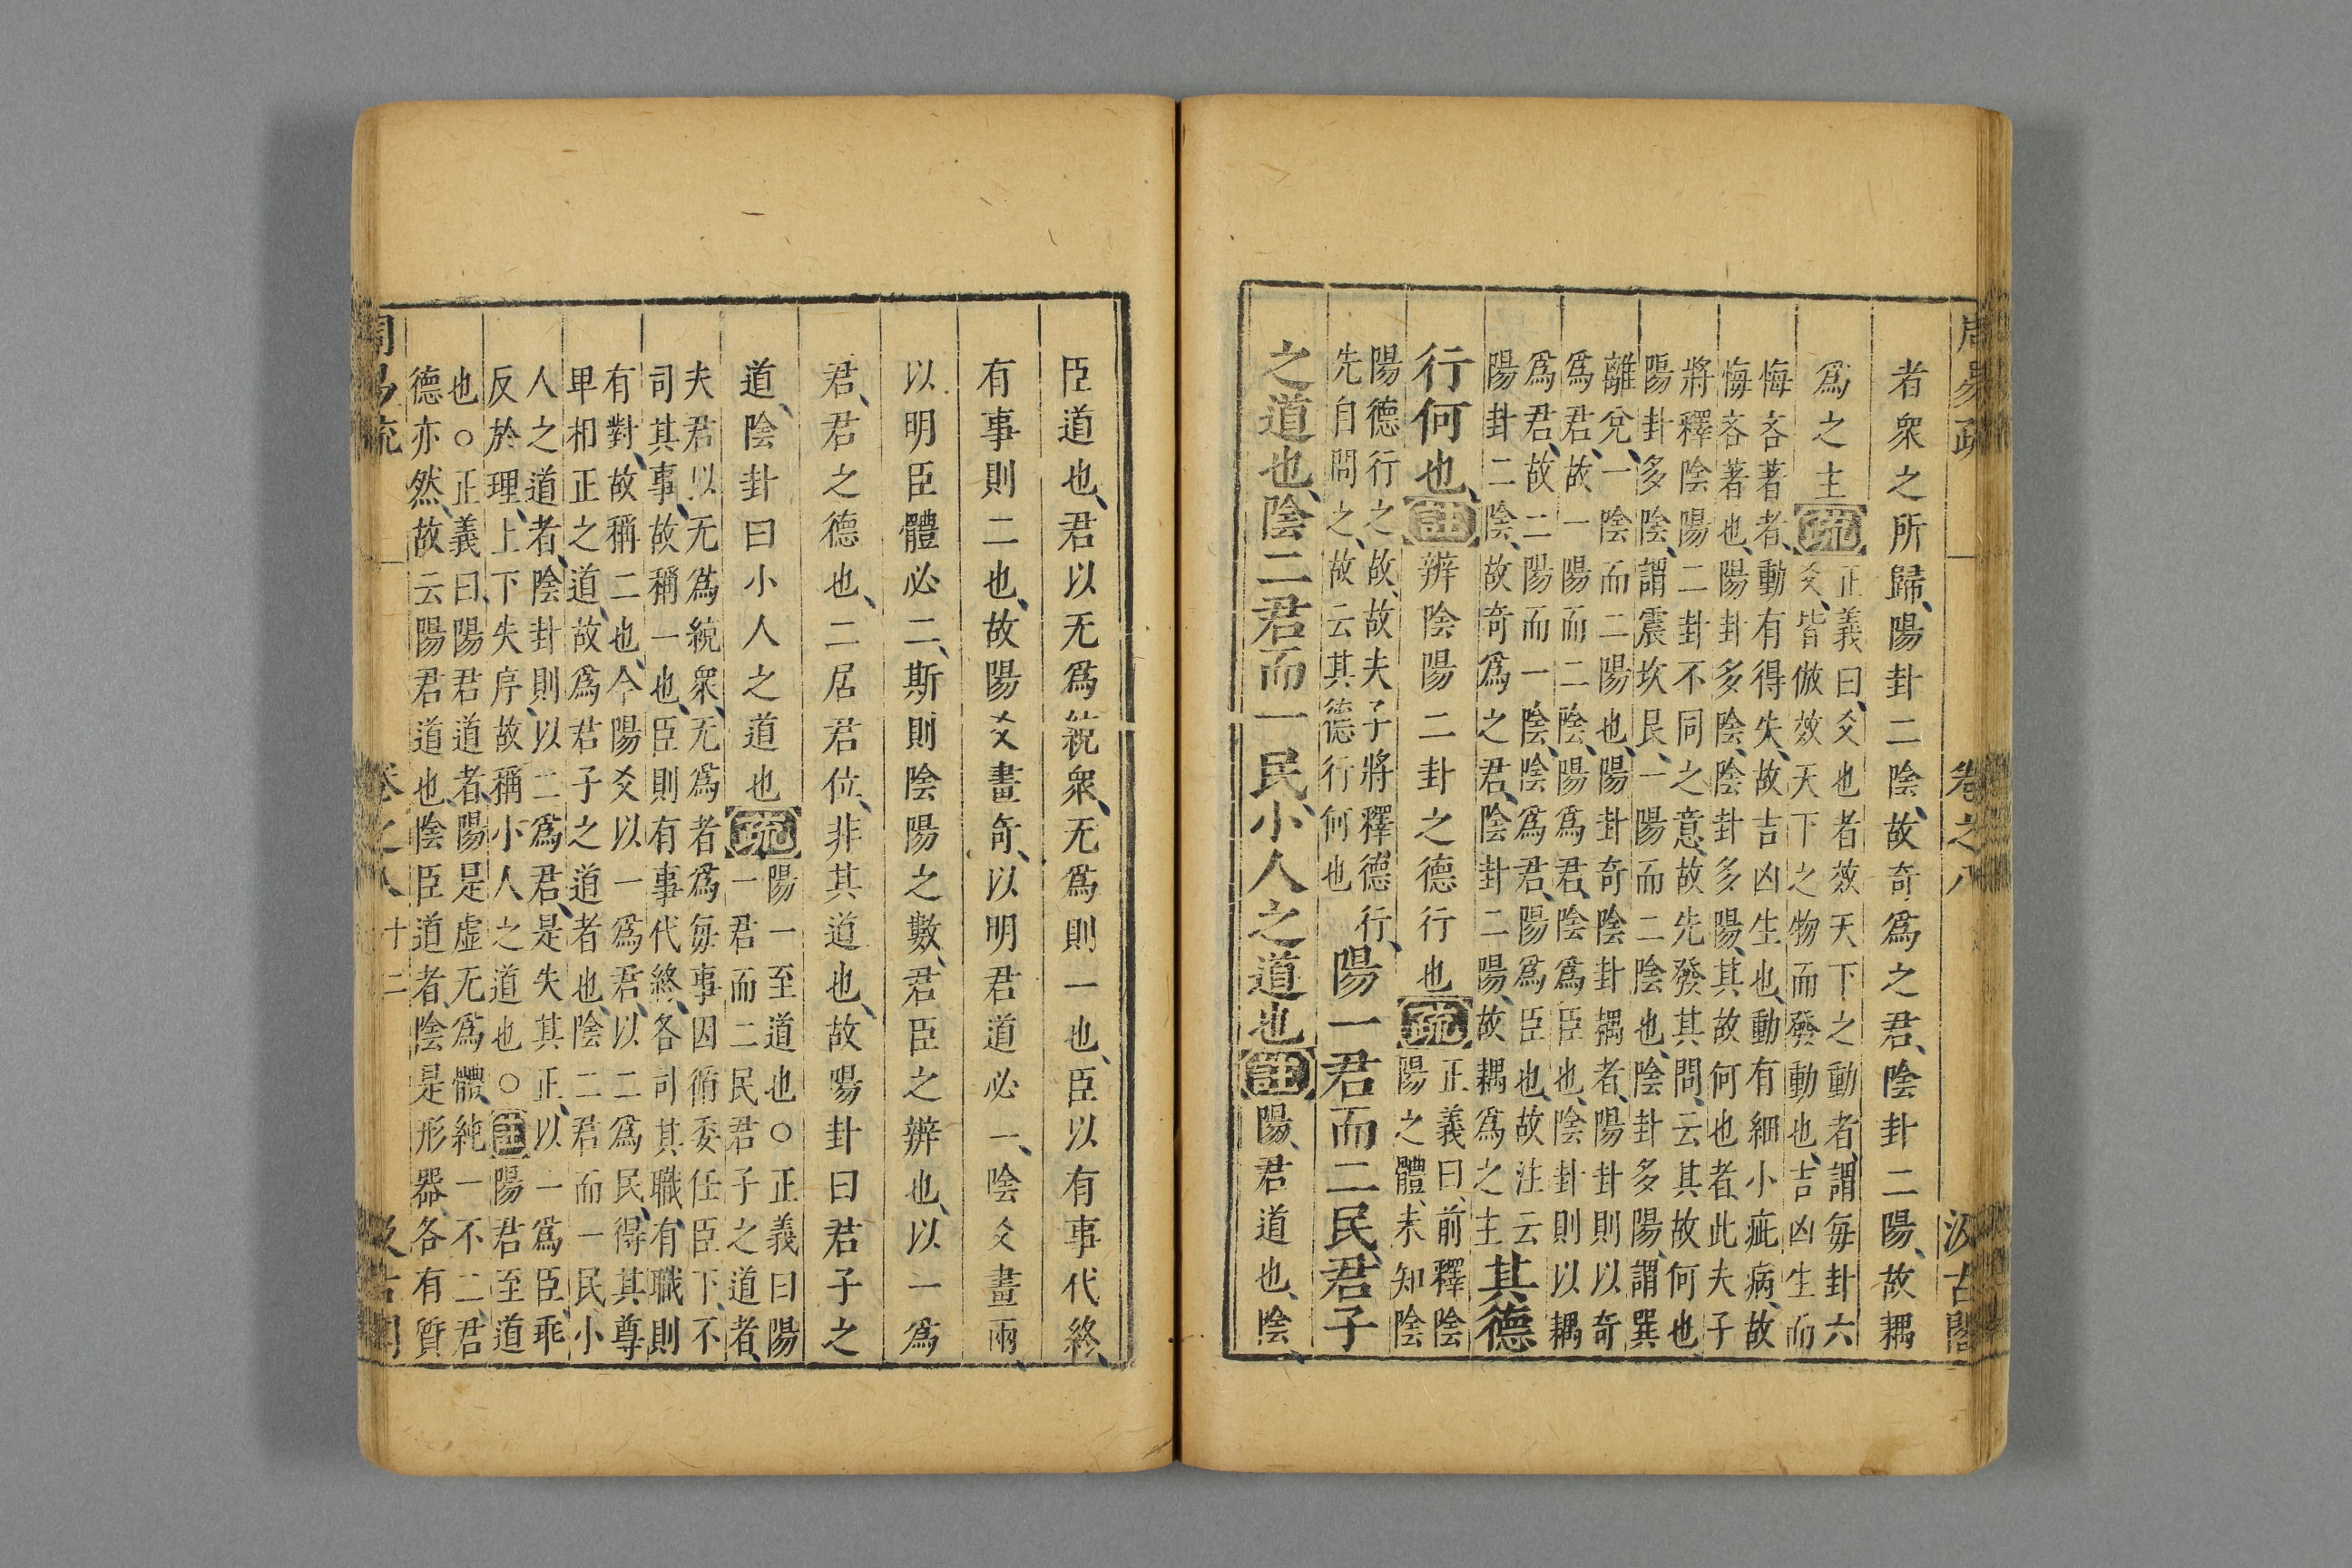 周易疏 卷之八 汲古閣
者衆之所歸、陽卦二陰、故奇爲之君、陰卦二陽、故耦
爲之主疏
正義曰、爻也者效天下之動者、謂每卦六
爻、皆倣效天下之物而發動也、吉凶生而
悔吝著者、動有得失、故吉凶生也、動有細小疵病、故
悔吝著也、陽卦多陰、陰卦多陽、其故何也者、此夫子
將釋陰陽二卦不同之意、故先發其問、云其故何也
陽卦多陰、謂震坎艮、一陽而二陰也、陰卦多陽、謂巽
離兌、一陰而二陽也、陽卦奇陰卦耦者、陽卦則以奇
爲君、故一陽而二陰、陽爲君、陰爲臣也、陰卦則以耦
爲君、故二陽而一陰、陰爲君、陽爲臣也、故注云
陽卦二陰、故奇爲之君、陰卦二陽、故耦爲之主
其德
行何也、註辨陰陽二卦之德行也疏
正義曰、前釋陰
陽之體、未知陰
陽德行之故、故夫子將釋德行、
先自問之、故云其德行何也
陽一君而二民、君子
之道也、陰二君而一民、小人之道也註陽、君道也、陰、
臣道也、君以无爲統衆、无爲則一也、臣以有事代終、
有事則二也、故陽爻畫奇、以明君道必一、陰爻畫兩、
以明臣體必二、斯則陰陽之數、君臣之辨也、以一爲
君、君之德也、二居君位、非其道也、故陽卦曰君子之
道、陰卦曰小人之道也疏
陽一至道也○正義曰陽
一君而二民君子之道者、
夫君以无爲統衆、无爲者爲每事因循委任臣下、不
司其事、故稱一也、臣則有事代終、各司其職、有職則
有對、故稱二也、今陽爻以一爲君、以二爲民、得其尊
卑相正之道、故爲君子之道者也、陰二君而一民小
人之道者、陰卦則以二爲君、是失其正、以一爲臣、乖
反於理、上下失序、故稱小人之道也○註陽君至道
也○正義曰、陽君道者、陽是虛无爲體、純一不二、君
德亦然、故云陽君道也、陰臣道者、陰是形器、各有質
周易疏 卷之八 十二 汲古閣